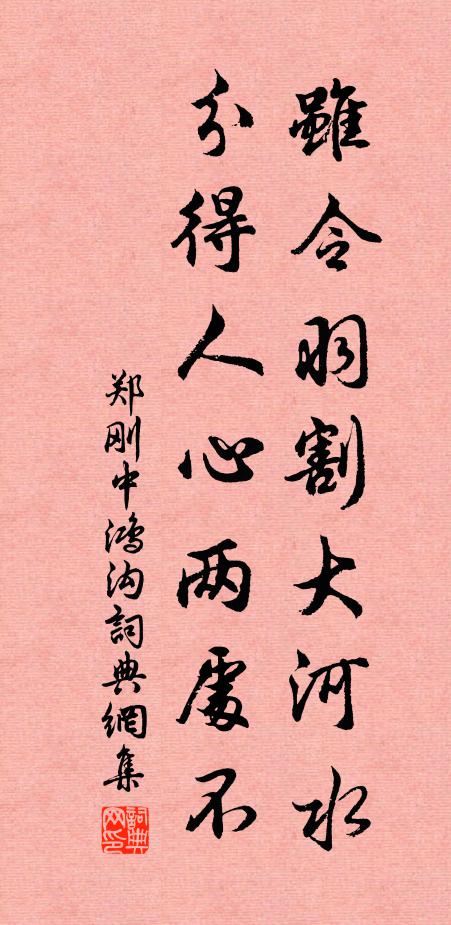 雖令羽割大河水
分得人心兩處不
郑刚中鸿沟詞典網集
詞典网印